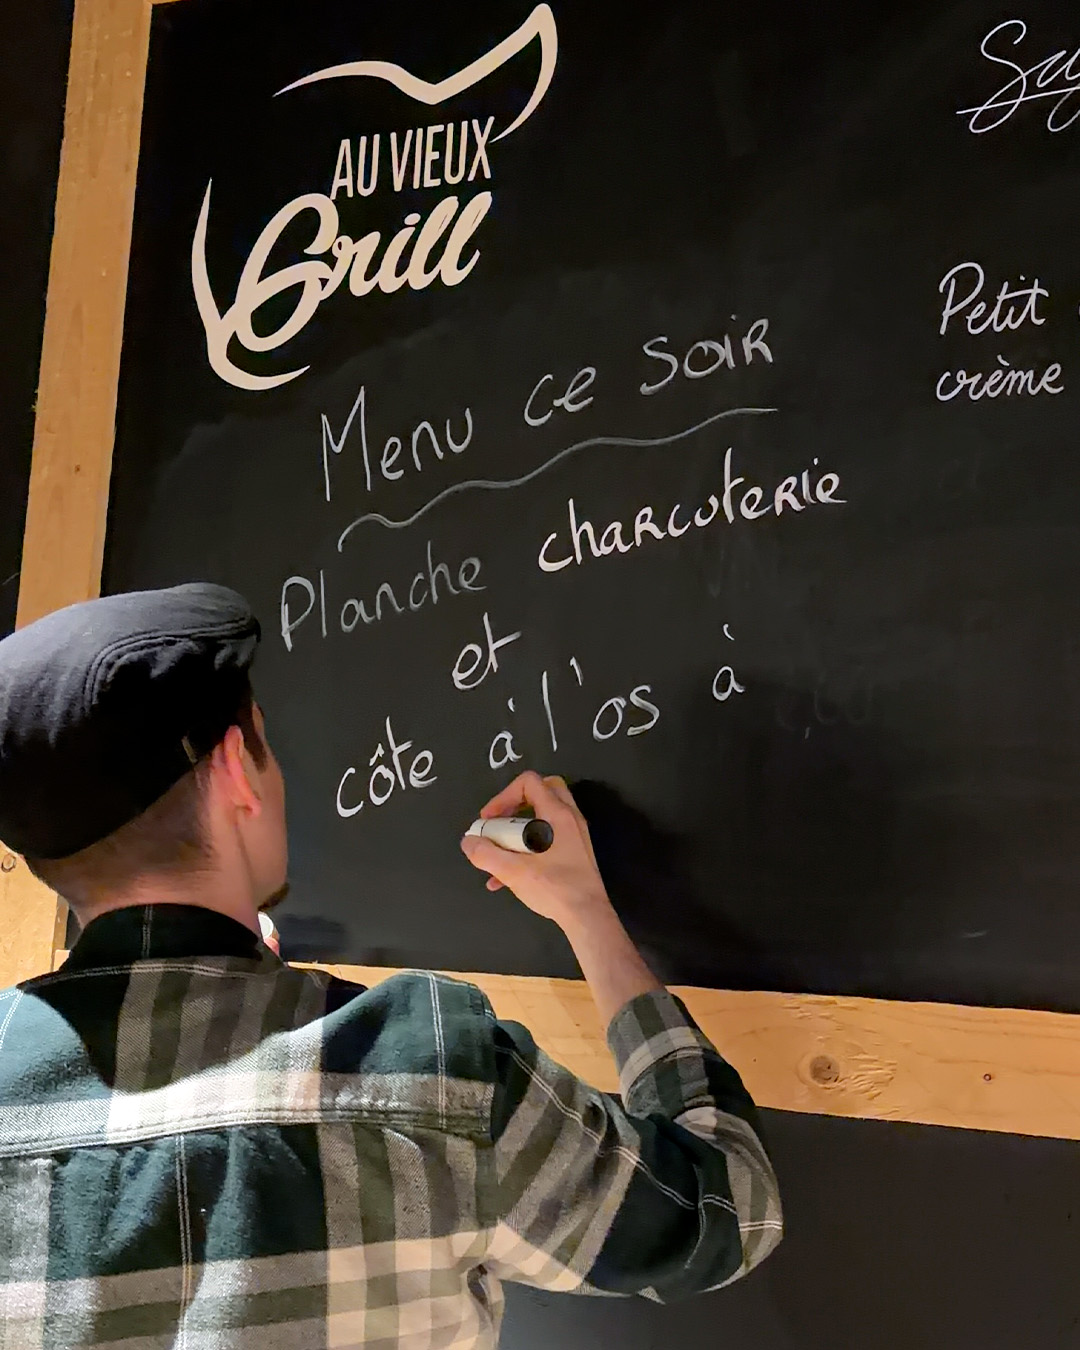 AU VIEUX
Grill
Menu ce soir
Planche charcuterie
et
côte à l'os à
Petit
crème